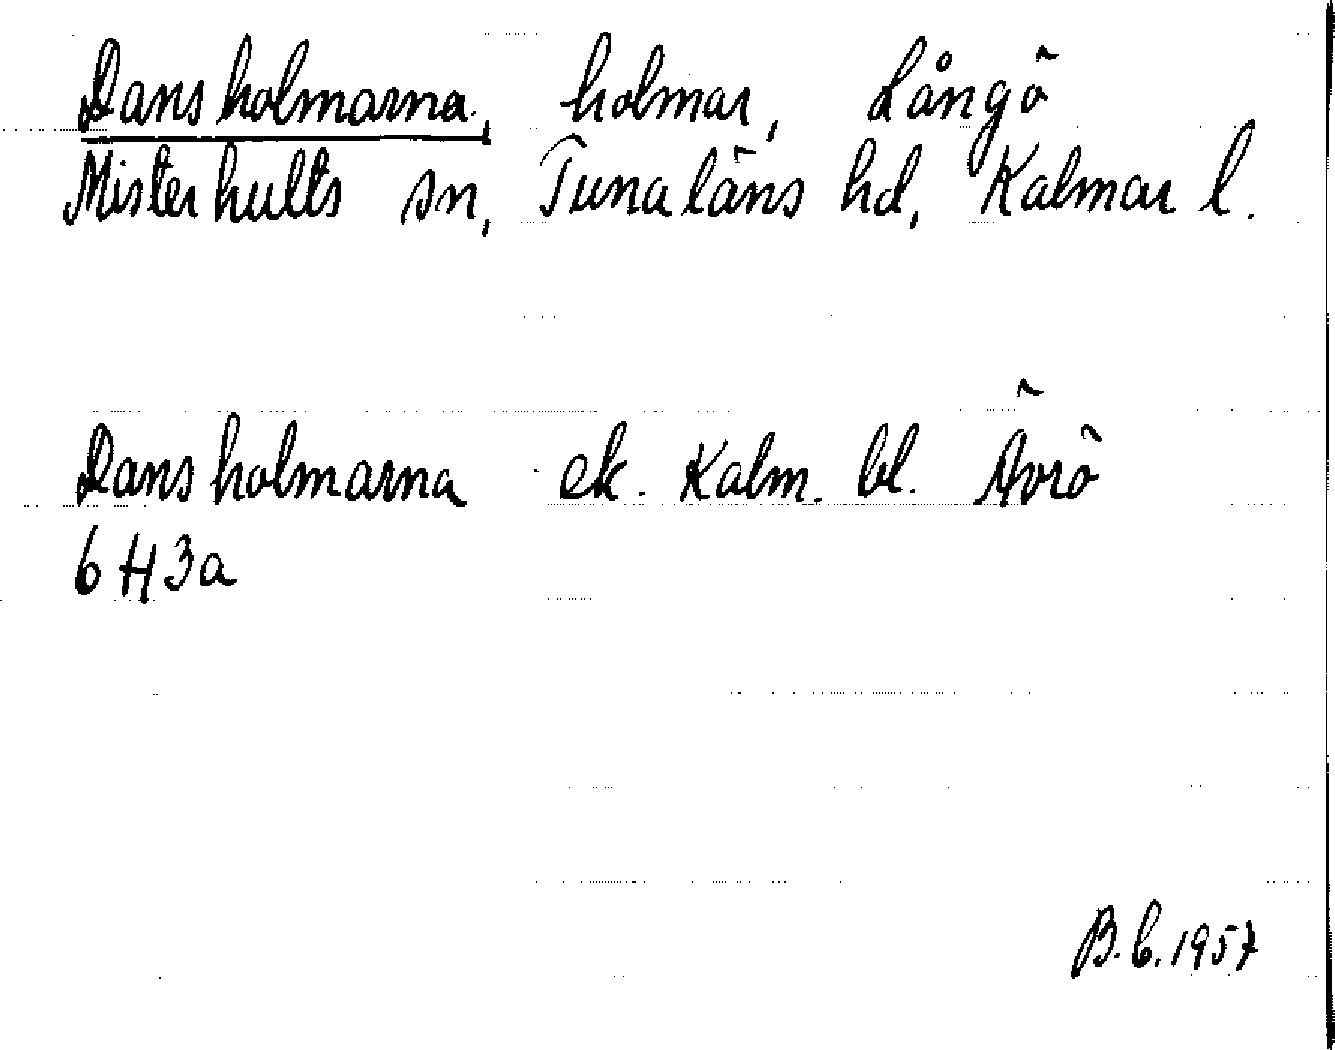 Dansholmarna, holmar, Långö
Misterhults sn, Tunaläns hd, Kalmar l.
Dansholmarna ek. Kalm. bl. Ävrö
6 H 3a
B.C. 1957